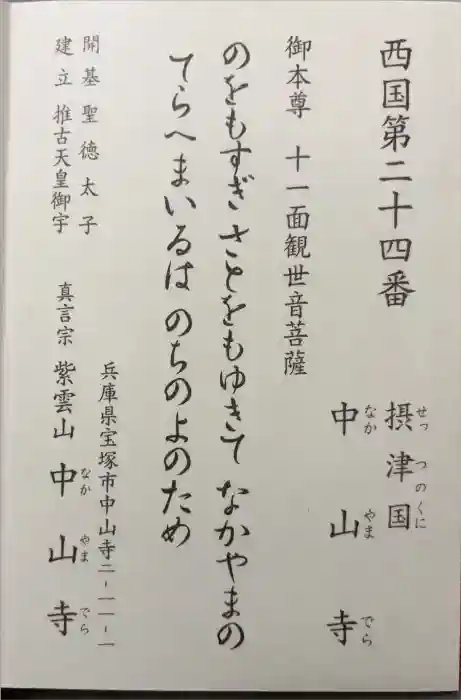 西国第二十四番 摂津国
せっ つのくに
中山寺
なか やま でら
御本尊 十一面観世音菩薩
のをもすぎ さとをもゆきて なかやまの
てらへまいるは のちのよのため
兵庫県宝塚市中山寺二-一一-一
開基 聖徳太子
建立 推古天皇御宇
真言宗 紫雲山 中山寺
なか やま でら